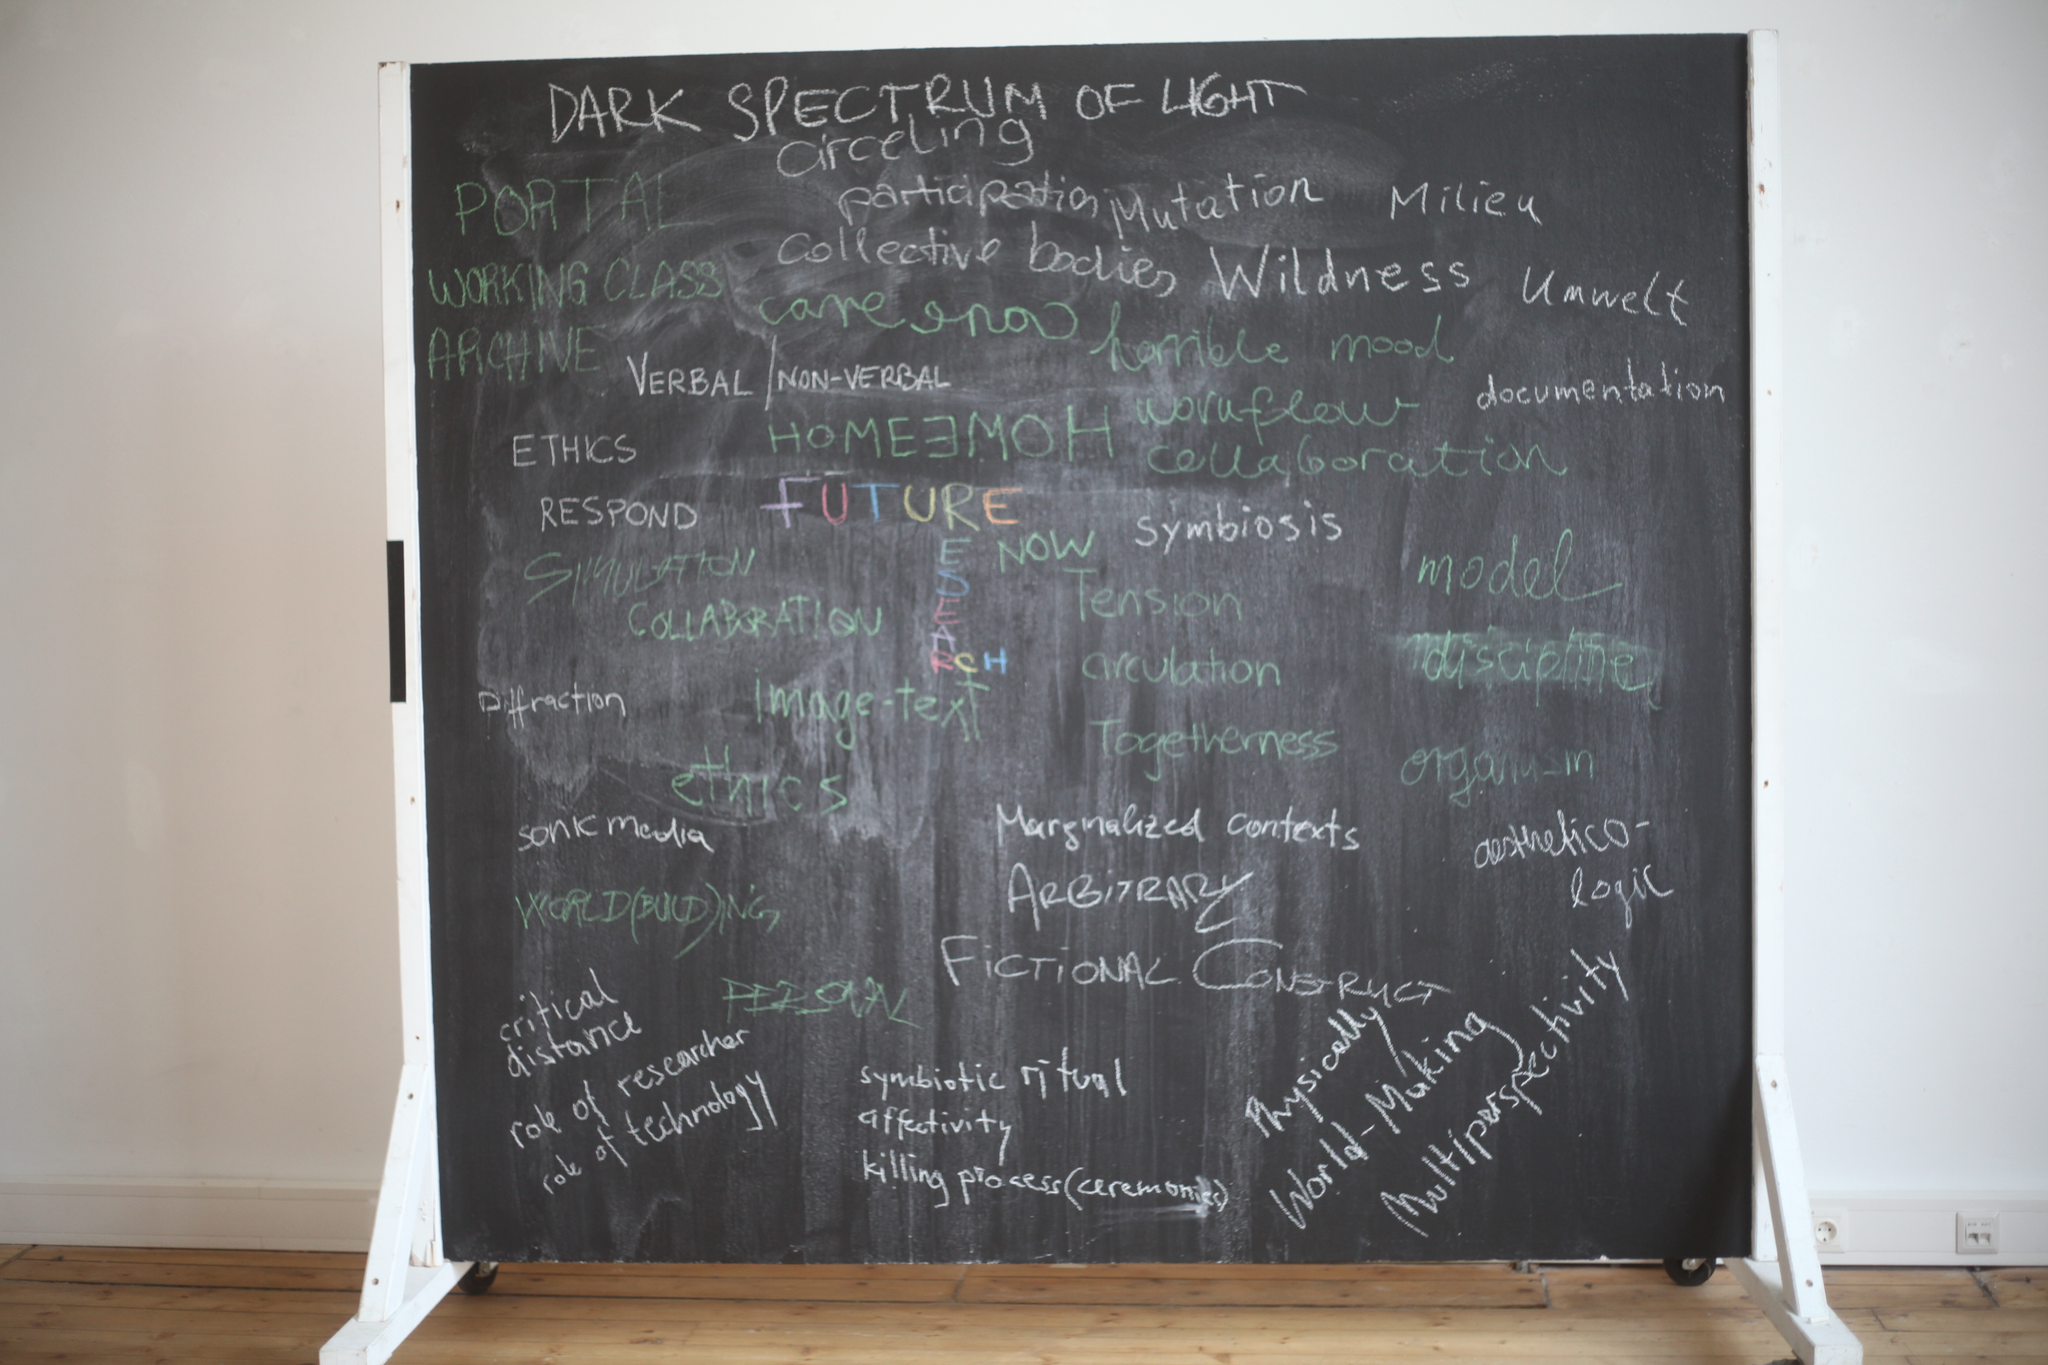 DARK SPECTRUM OF LIGHT
circeling
PORTAL
participation
Mutation
Milieu
collective bodies
Wildness
Umwelt
WORKING CLASS
ARCHIVE
care
horrible mood
VERBAL/NON-VERBAL
documentation
HOMEEMOH
workflow
collaboration
ETHICS
RESPOND
FUTURE
RESEARCH
NOW
symbiosis
SIMULATION
COLLABORATION
Tension
model
circulation
discipline
Diffraction
image-text
Togetherness
organism
ethics
sonic media
Marginalized contexts
aesthetico-
logic
ARBITRARY
WORLD(BUILD)ING
FICTIONAL CONSTRUCT
PERSONAL
critical
distance
role of researcher
role of technology
symbiotic ritual
affectivity
killing process (ceremonies)
Physically
World-Making
Multiperspectivity